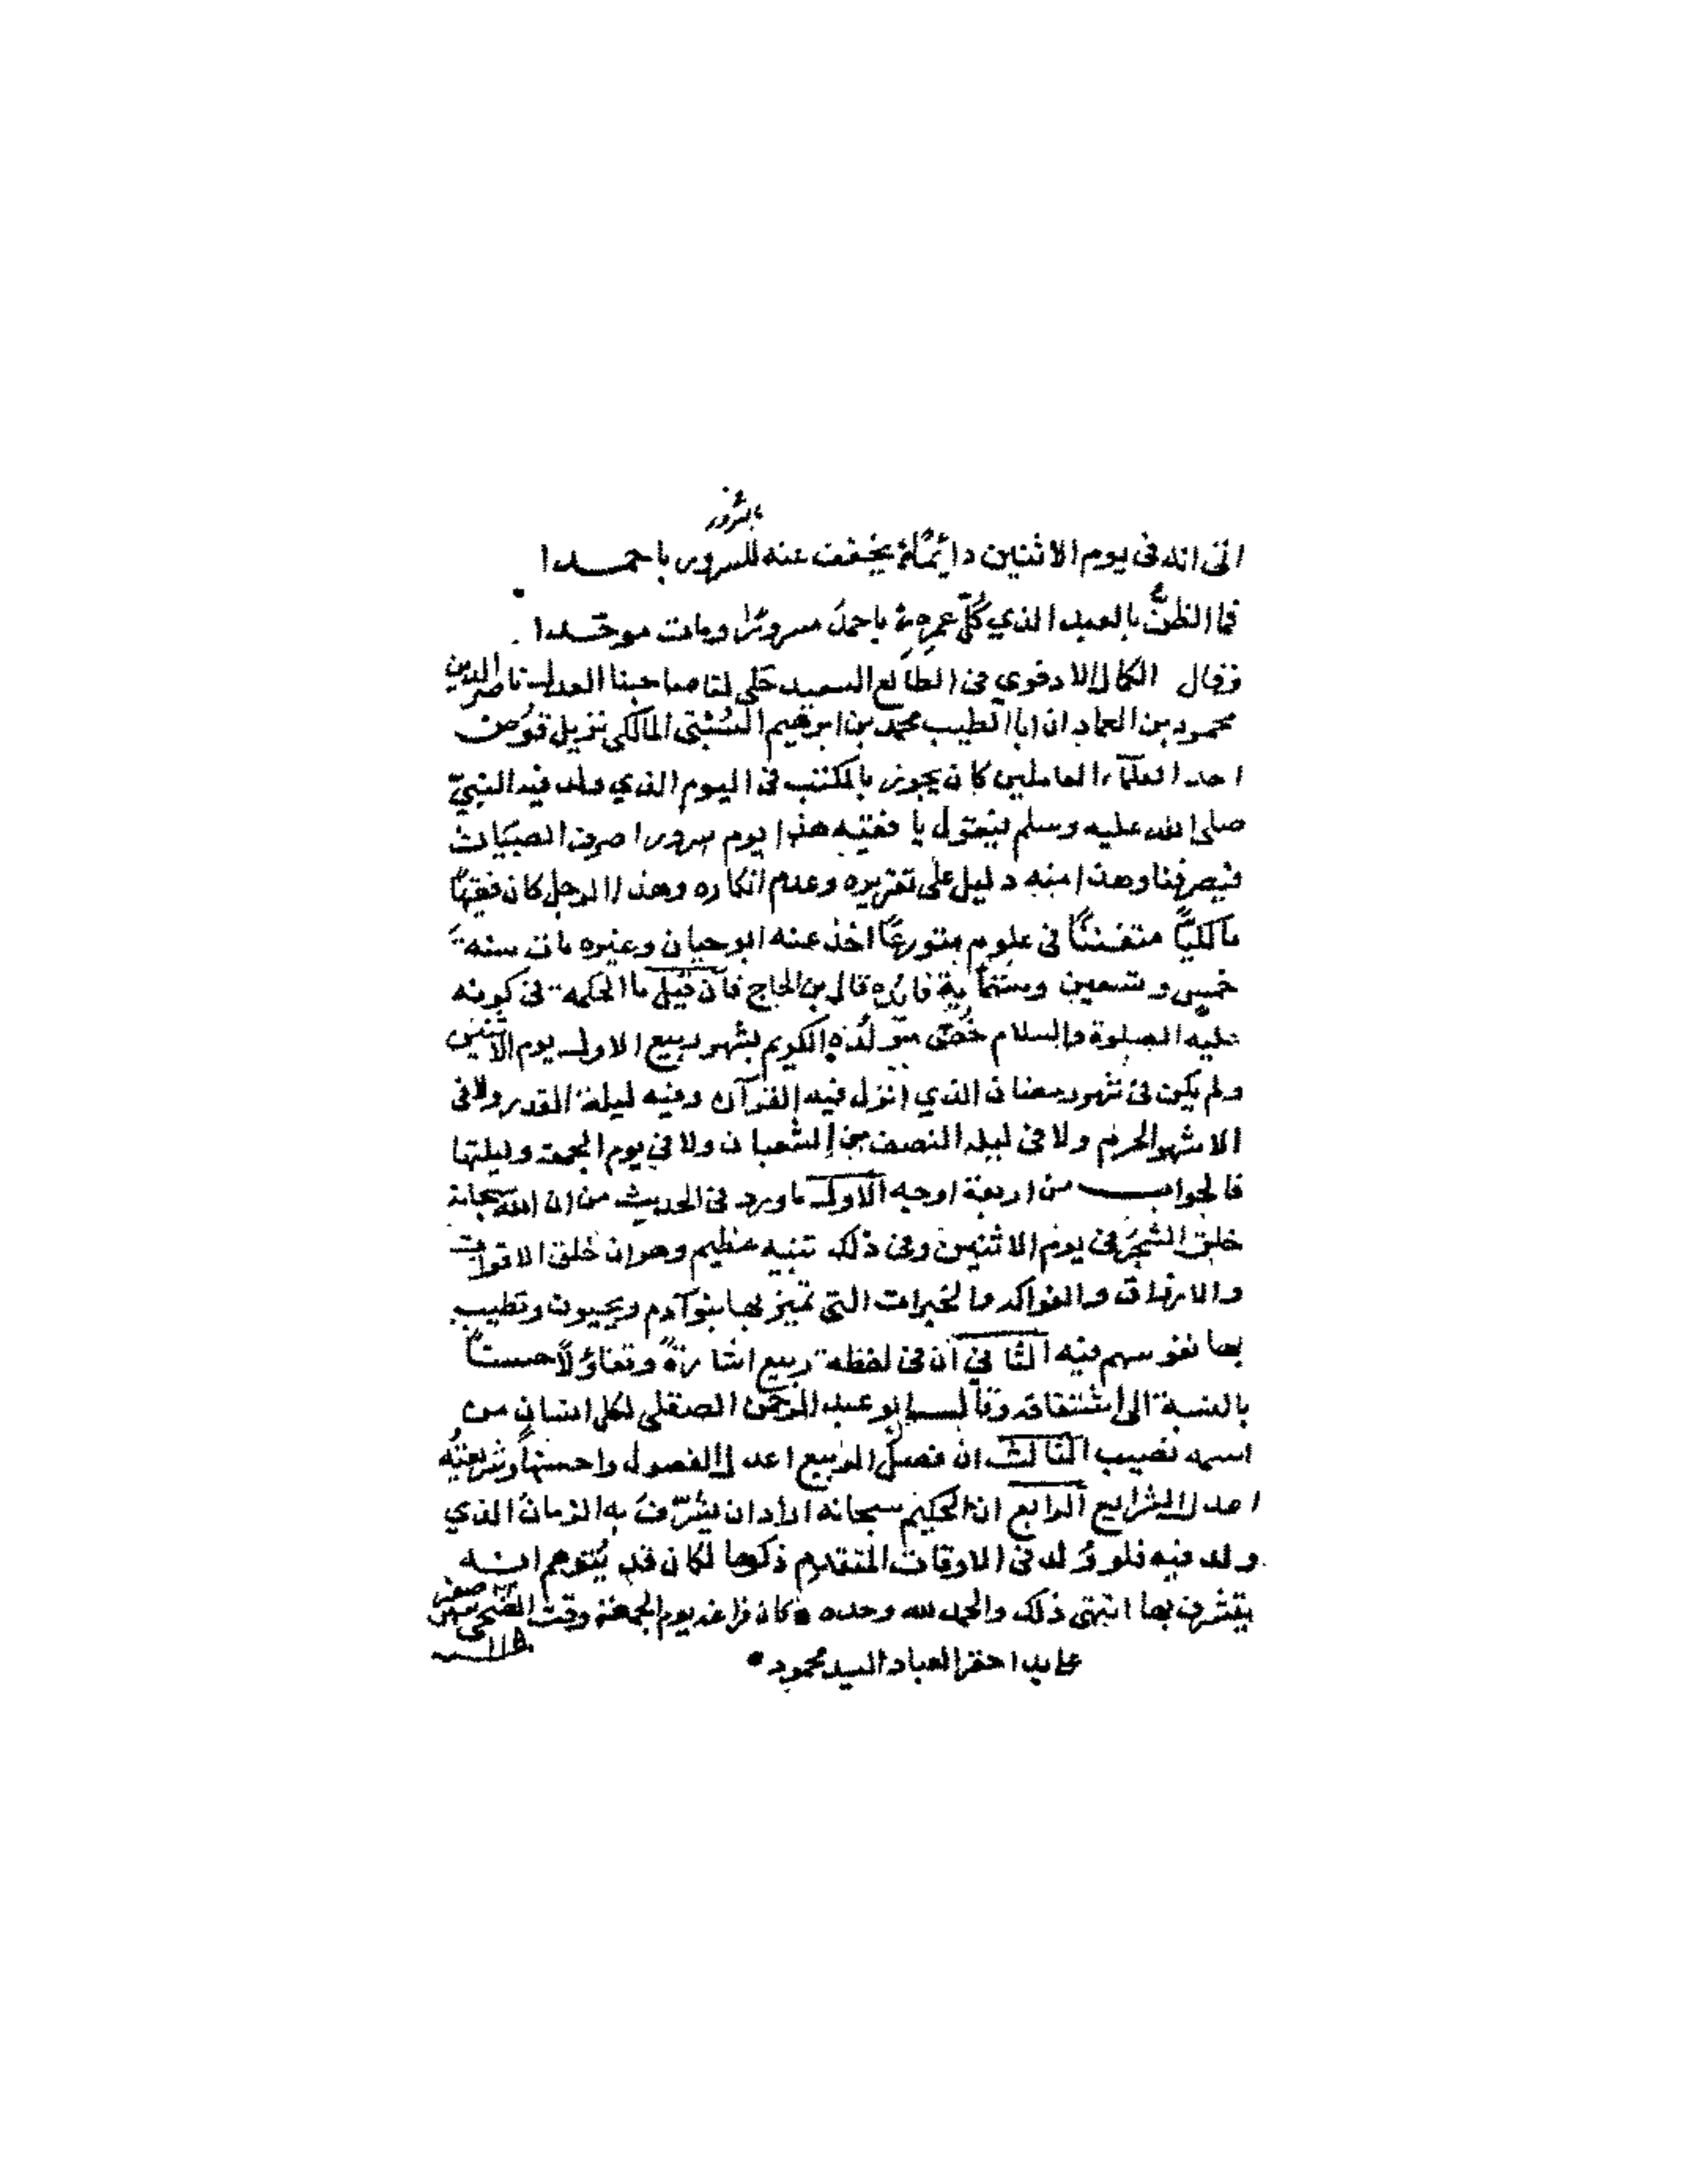 بشرور
اتى انه فى يوم الاثنين دائمًا يخفف عنه للسرور باحمدا
فما الظنُّ بالعبد الذي كُلّ عمره باحمدَ مسرورًا ومات موحّدا
وقال الكمال الادفوي فى الطالع السعيد حَكى لنا صاحبنا العدل ناصر الدين
محمود بن العماد ان ابا الطيب محمّد بن ابرهيم السَّبتى المالكى نزيل قوُص
احد العلمآء العاملين كان يجوز بالمكتب فى اليوم الذي ولد فيه النبيّ
صلى الله عليه وسلم فيقول يا فقيه هذا يوم سرور اصرف الصبيان
فيصرفنا وهذا منه دليل على تقريره وعدم انكاره وهذا الرجل كان فقيهًا
مالكيًّا متفننًا فى علوم متورعًا اخذ عنه ابو حيان وغيره مات سنة
خمس وتسعين وستمأية فائده قال بن الحاج فان قيل ما الحكمة فى كونه
عليه الصلوة والسلام خُصّ مولده الكريم بشهر ربيع الاول يوم الاثنين
ولم يكن فى شهر رمضان الذي انزل فيه القرآن وفيه ليلة القدر ولا فى
الاشهر الحرم ولا فى ليلة النصف من الشعبان ولا في يوم الجمعة وليلتها
فالجواب من اربعة اوجه الاول ما ورد فى الحديث من ان الله سبحانه
خلق الشجر فى يوم الاثنين وفى ذلك تنبيه عظيم وهو ان خلق الاقوات
والارزاق والفواكه والخيرات التى تميز بها بنو آدم ويحيون وتطيب
بها نفوسهم فيه الثاني ان فى لفظة ربيع اشارةً وتفاؤلًا حسنًا
بالنسبة الى اشتقاقه وقال ابو عبد الرحمن الصقلى لكل انسان من
اسمه نصيب الثالث ان فصل الربيع اعدل الفصول واحسنها وشريعتُه
اعدل الشرايع الرابع ان الحكيم سبحانه اراد ان يشرّفَ به الزمان الذي
ولد فيه فلو وُلد فى الاوقات المتقدم ذكرها لكان قد يُتوهم انه
يتشرف بها انتهى ذلك والحمد لله وحده كان فراغه يوم الجمعة وقت الضحى صفر
على يد احقر العباد السيد محمود